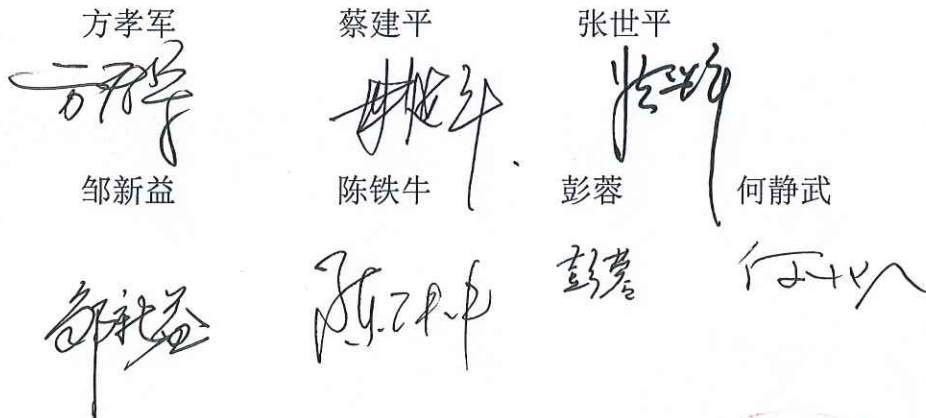 方孝军 蔡建平 张世平
方孝军 蔡建平 张世平
邹新益 陈铁牛 彭蓉 何静武
邹新益 陈铁牛 彭蓉